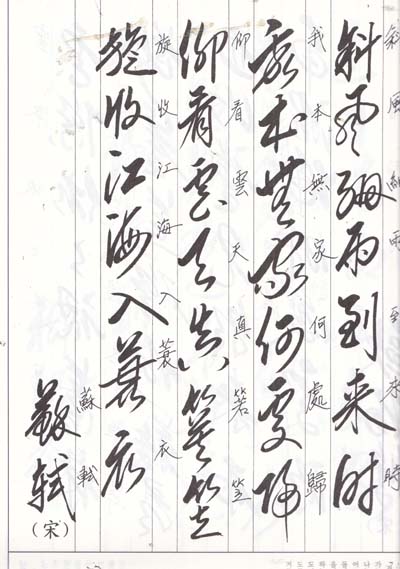 斜風細雨到来時
斜風細雨到来時
我本無家何處歸
我本無家何處歸
仰看雲天真箬笠
仰看雲天真箬笠
旋收江海入蓑衣
旋收江海入蓑衣
蘇軾
蘇軾
(宋)